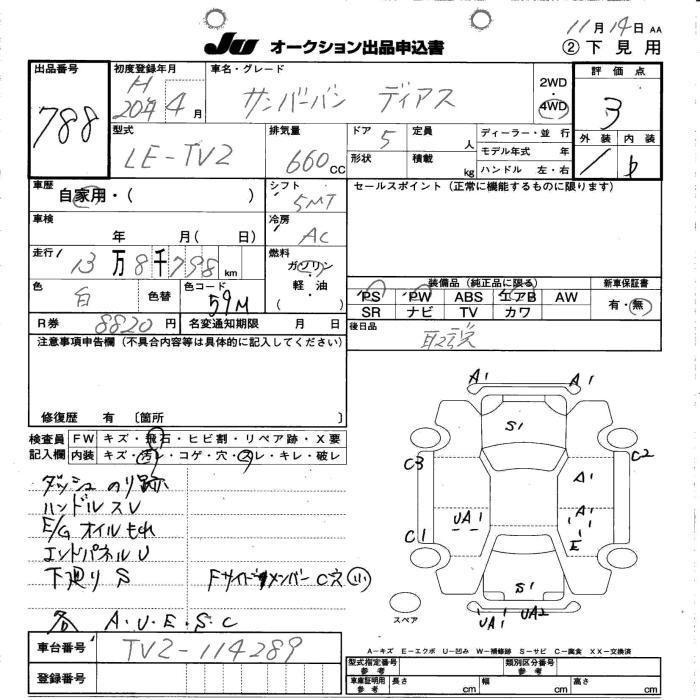 JU オークション出品申込書
11月14日 AA
② 下見用
出品番号 788
初度登録年月 H 20年 4月
車名・グレード サンバーバン ディアス
2WD
4WD
評価点 3
外装 内装
型式 LE-TV2
排気量 660cc
ドア 5
定員 人
形状
積載 kg
ディーラー・並行
モデル年式 年
ハンドル 左・右
車歴 自家用・( )
シフト 5MT
セールスポイント(正常に機能するものに限ります)
車検 年 月( 日)
冷房 AC
走行 13万8千798km
燃料 ガソリン・軽油・( )
色 白 色替
色コード 59M
装備品(純正品に限る)
PS PW ABS エアB AW
SR ナビ TV カワ
新車保証書 有・無
R券 8820円
名変通知期限 月 日
後日品 取説
注意事項申告欄(不具合内容等は具体的に記入してください)
修復歴 有 〔箇所 〕
検査員記入欄
FW キズ・飛石・ヒビ割・リペア跡・X要
内装 キズ・汚レ・コゲ・穴・スレ・キレ・破レ
ダッシュのり跡
ハンドルスレ
E/G オイルもれ
エンドパネルU
下廻りS Fサイドメンバー C穴 小
各 A.U.E.S.C
A1 A1
S1
C3 C2
A1
UA1 A1
C1 E
S1
UA1 UA2
スペア
車台番号 TV2-114289
登録番号
A-キズ E-エクボ U-凹み W-補修跡 S-サビ C-腐食 XX-交換済
型式指定番号 参考
類別区分番号 参考
車庫証明用 参考 長さ cm 幅 cm 高さ cm